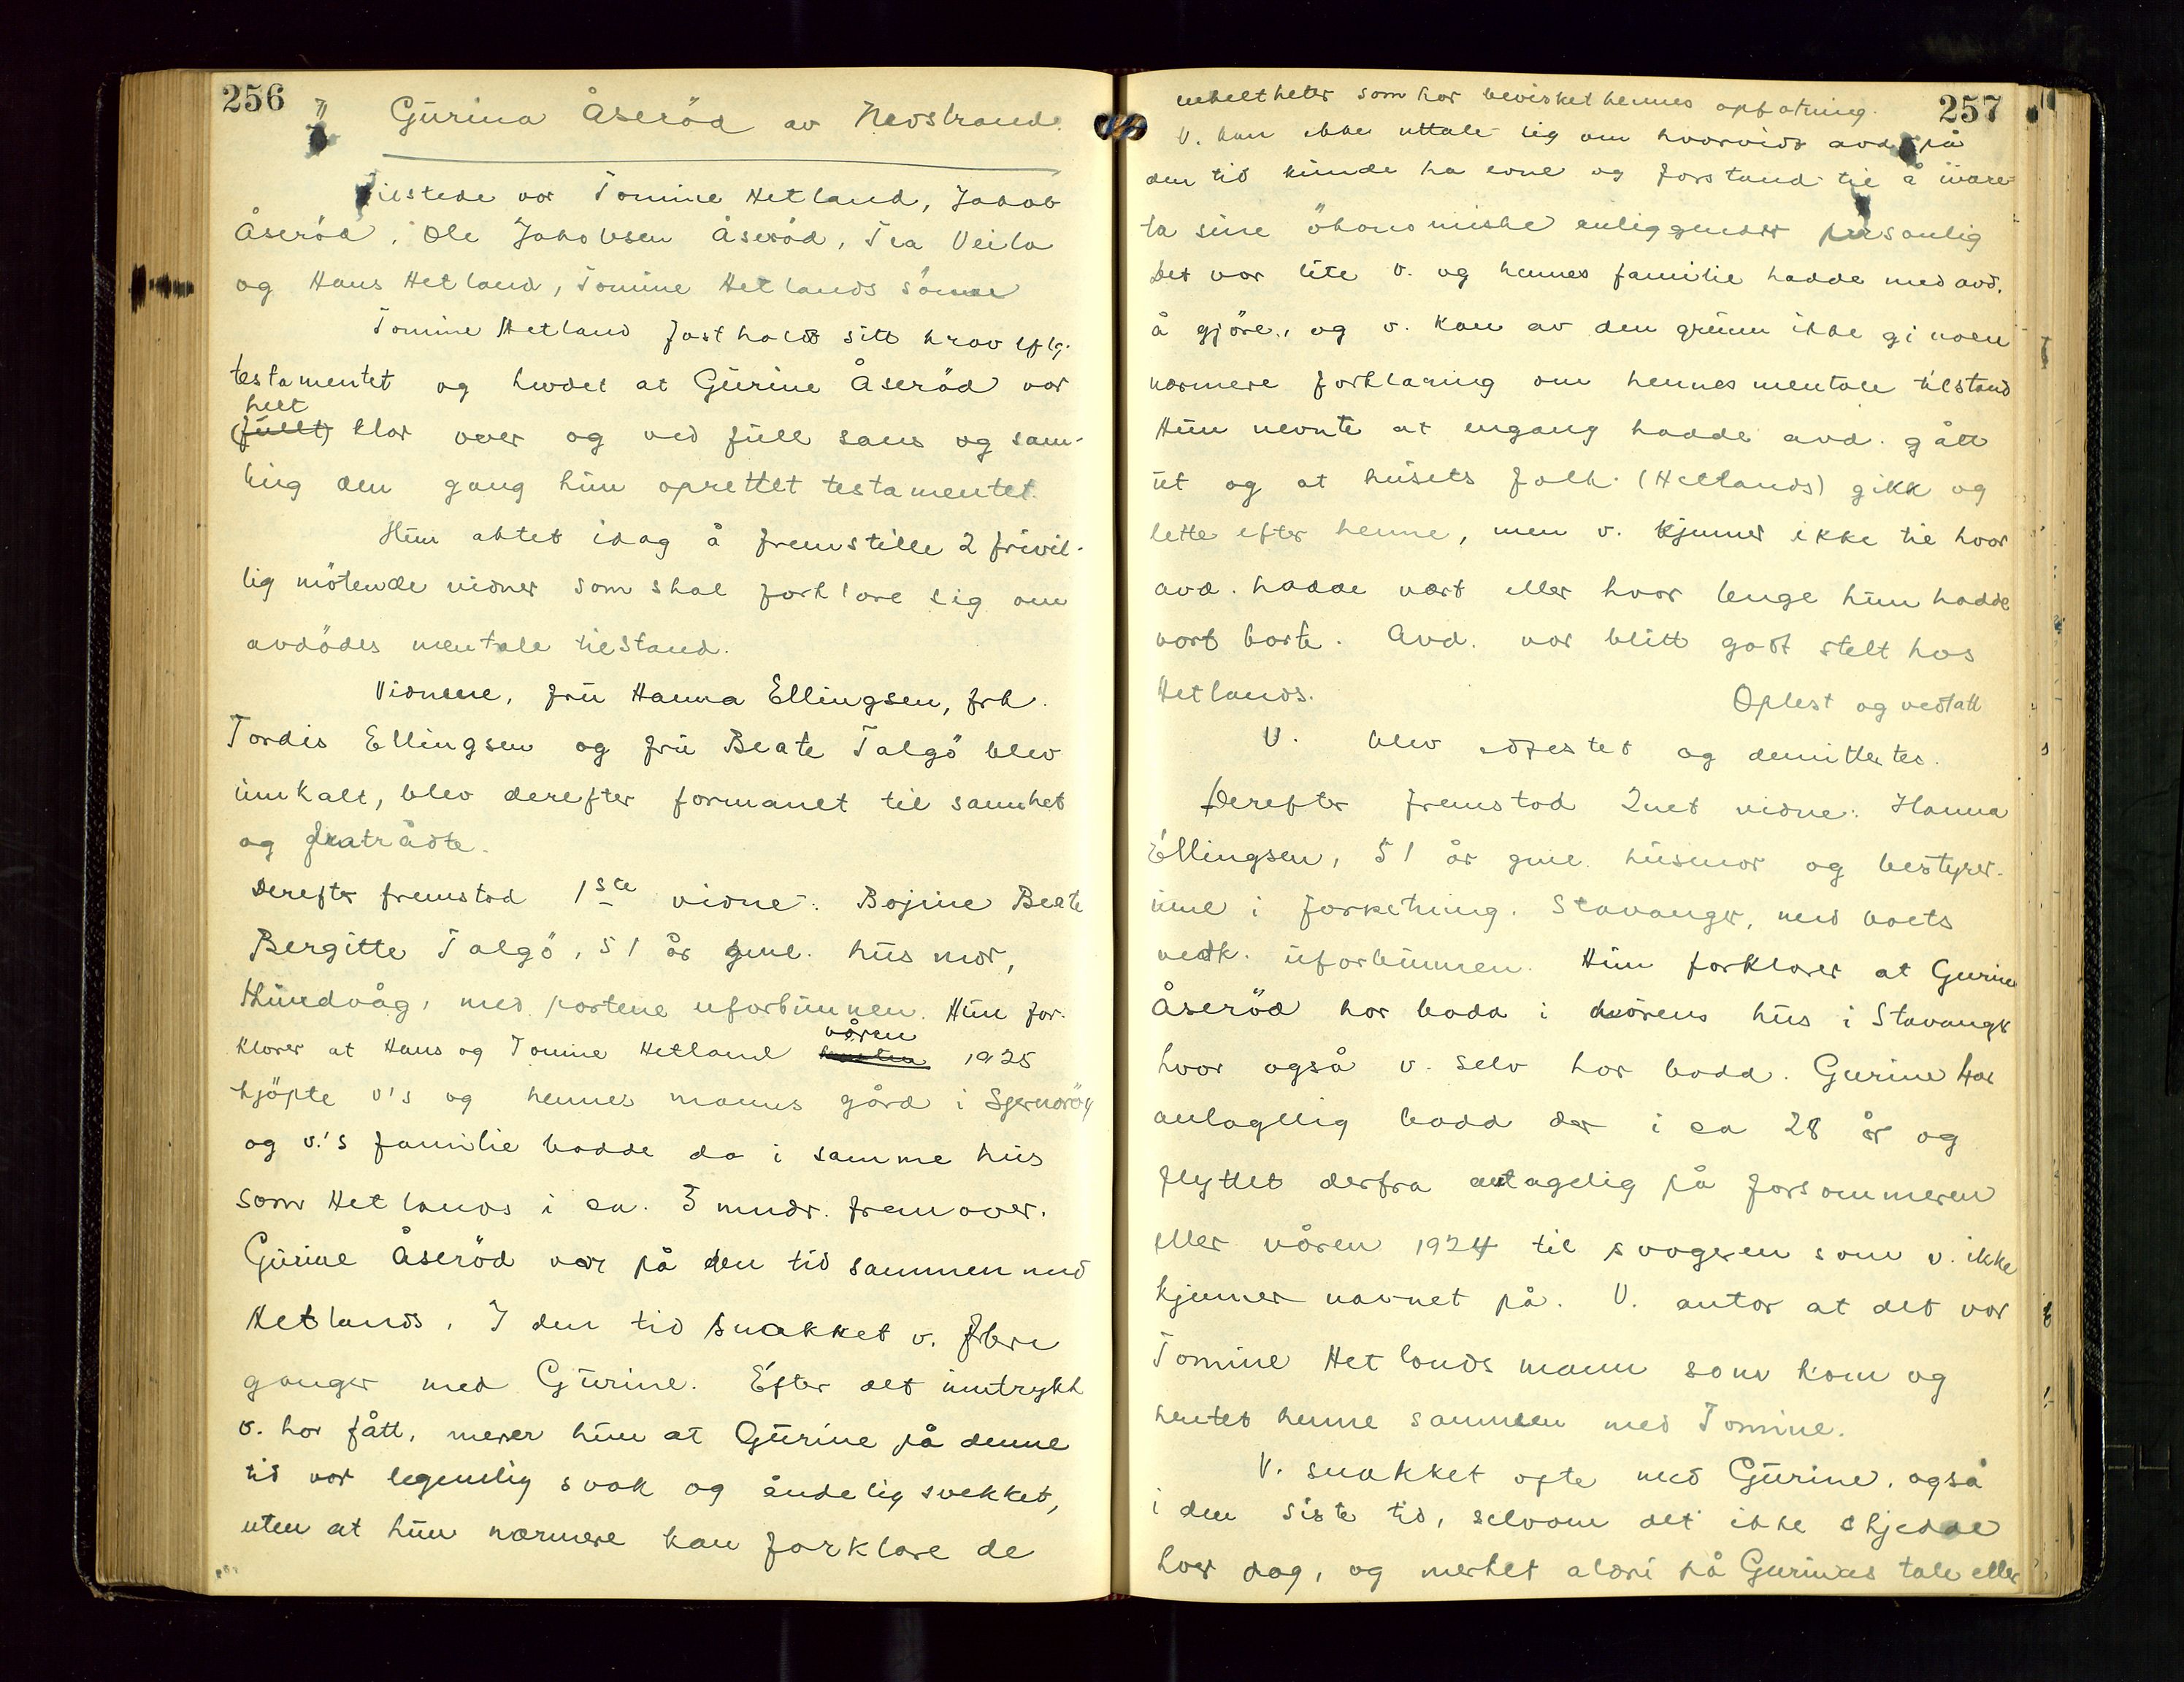 256
" Gurina Åseröd av Nedstrand.
Tilstede var Tomine Hetland, Jakob
Åseröd, Ole Jakobsen Åseröd, Tea Veila
og Hans Hetland, Tomine Hetlands sönner
Tomine Hetland fastholdt sitt krav iflg.
testamentet og hevdet at Gurine Åseröd var
helt
(fullt) klar over og ved full sans og sam-
ling den gang hun oprettet testamentet.
Hun aktet idag å fremstille 2 frivil-
lig mötende vidner som skal forklare sig om
avdödes mentale tilstand.
Vidnene, fru Hanna Ellingsen, frk.
Tordis Ellingsen og fru Beate Talgö blev
innkalt, blev derefter formanet til sannhet
og fratrådte.
Derefter fremstod 1ste vidne: Bojine Beate
Bergitte Talgö, 51 år gml. husmor,
Hundvåg, med partene uforbunnen. Hun for-
våren
klarer at Hans og Tomine Hetland høsten 1925
kjöpte v's og hennes manns gård i Sjernaröy
og v.'s familie bodde da i samme hus
som Hetlands i ca. 3 mndr. fremover.
Gurine Åseröd var på den tid sammen med
Hetlands. I den tid snakket v. flere
ganger med Gurine. Efter det inntrykk
v. har fått, mener hun at Gurine på denne
tid var legemlig svak og åndelig svekket,
uten at hun nærmere kan forklare de
257
enkeltheter som har bevirket hennes opfatning.
V. kan ikke uttale sig om hvorvidt avd. på
den tid kunde ha evne og forstand til å ivare-
ta sine ökonomiske anliggender personlig
Det var lite v. og hennes familie hadde med avd.
å gjöre, og v. kan av den grunn ikke gi noen
nærmere forklaring om hennes mentale tilstand
Hun nevnte at engang hadde avd. gått
ut og at husets folk (Hetlands) gikk og
lette efter henne, men v. kjenner ikke til hvor
avd. hadde vært eller hvor lenge hun hadde
vært borte. Avd. var blitt godt stelt hos
Hetlands. Oplest og vedtatt
V. blev edfestet og demittertes.
Derefter fremstod 2net vidne: Hanna
Ellingsen, 51 år gml. husmor og bestyrer-
inne i forretning. Stavanger, med boets
vedk. uforbunnen. Hun forklarer at Gurine
Åseröd har bodd i dvörens hus i Stavanger
hvor også v. selv har bodd. Gurine har
antagelig bodd der i ca 28 år og
flyttet derfra antagelig på forsommeren
eller våren 1924 til svogeren som v. ikke
kjenner navnet på. V. antar at det var
Tomine Hetlands mann som kom og
hentet henne sammen med Tomine.
V. snakket ofte med Gurine, også
i den siste tid, selvom det ikke skjedde
hver dag, og merket aldri på Gurinas tale eller